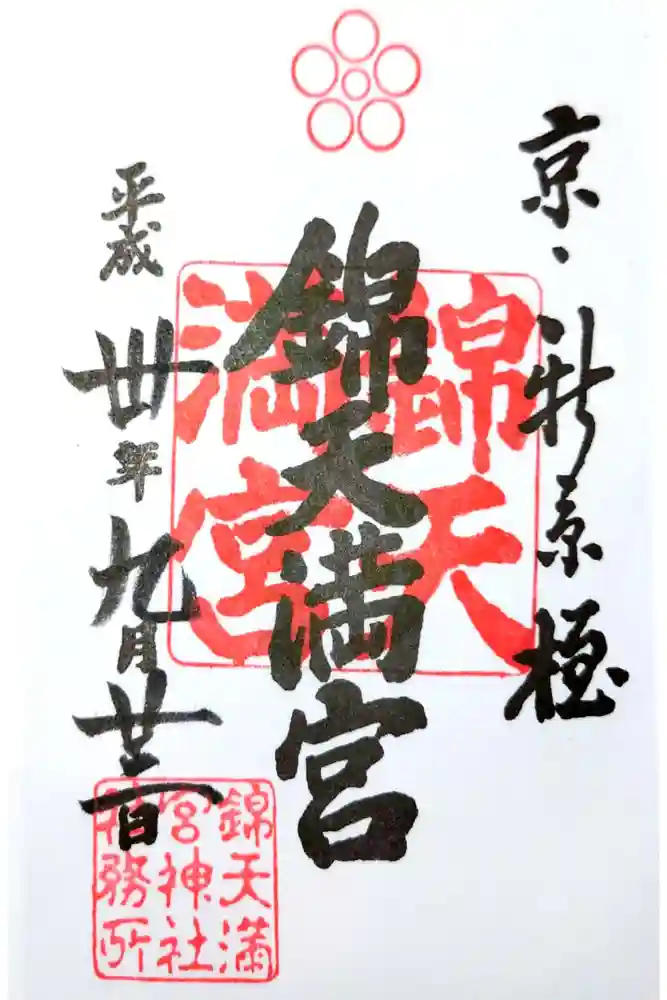 京・新京極
錦天満宮
錦天
満宮
平成卅年九月廿二日
錦天満
宮神社
社務所